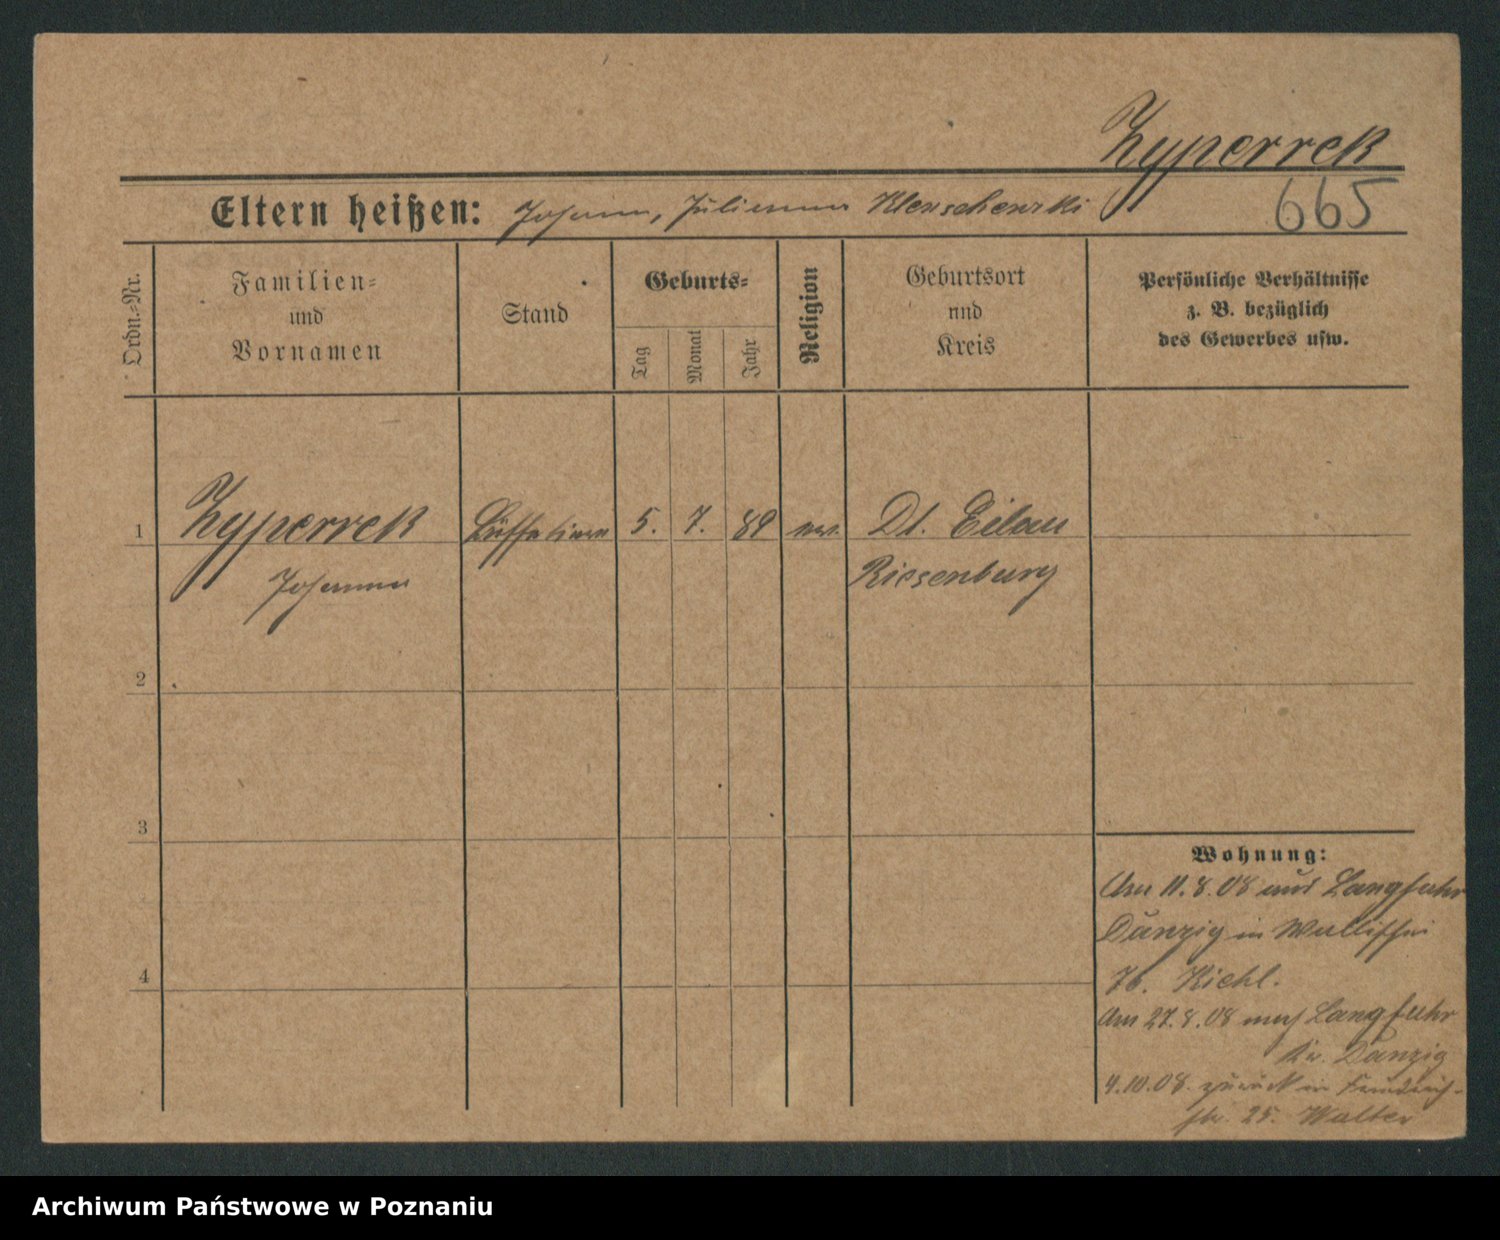 Zyperrek
Eltern heißen: Johann, Julianna
665
Ordn.-Nr.
Familien-
und
Vornamen
Stand
Geburts-
Tag
Monat
Jahr
Religion
Geburtsort
und
Kreis
Persönliche Verhältnisse
z. B. bezüglich
des Gewerbes usw.
1 Zyperrek Büffetiere 5. 7. 89 Dt. Eilau
Johanna Riesenburg
2
3
Wohnung:
Am 11.8.08 aus Langfuhr
Danzig in Wallischei
76. Kiehl.
4
Am 27.8.08 nach Langfuhr
Kr. Danzig
4.10.08. zurück in Friedrich-
str. 25. Walter
Archiwum Państwowe w Poznaniu